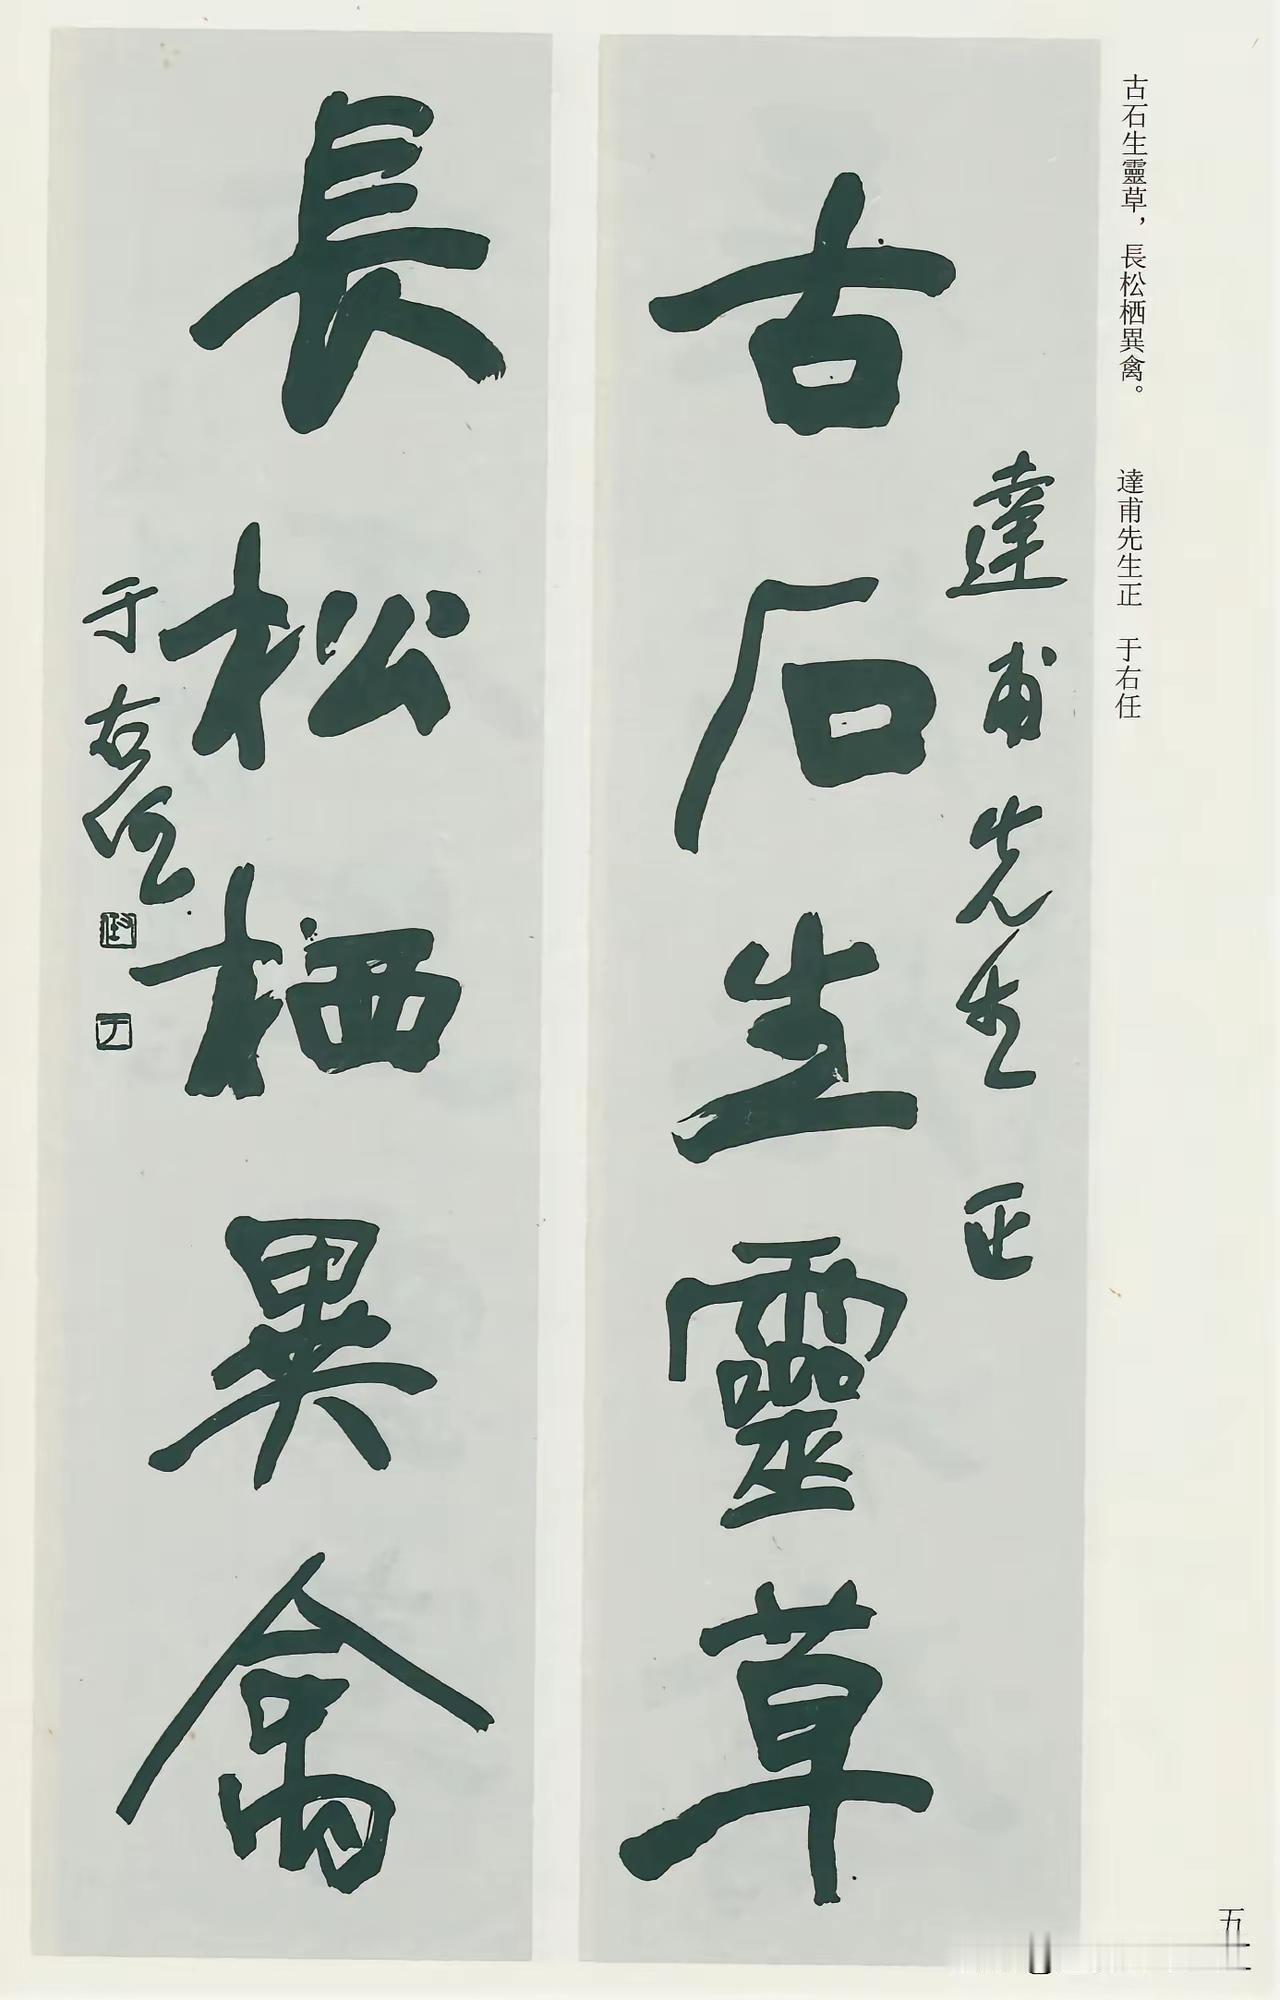 古石生靈草，長松栖異禽。　達甫先生正　于右任
達甫先生正
古石生靈草
長松栖異禽
于右任
五